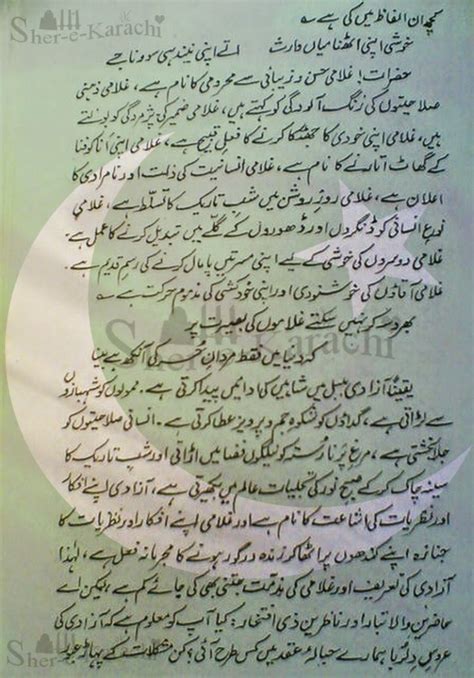 Sher-e-Karachi
کچھ ان الفاظ میں کی ہے ؎
خوشی اپنی اٹھنا میاں وارث اتے اپنی نیند ہی سوونا جے
حضرات! غلامی حسن و زیبائی سے محرومی کا نام ہے، غلامی ذہنی
صلاحیتوں کی زنگ آلودگی کو کہتے ہیں، غلامی ضمیر کی پژمردگی کو بولتے
ہیں، غلامی اپنی خودی کا جھٹکا کرنے کا فعل قبیح ہے، غلامی اپنی انا کو فنا
کے گھاٹ اتارنے کا نام ہے، غلامی انسانیت کی ذلت اور نامرادی کا
اعلان ہے، غلامی روزِ روشن میں شبِ تاریک کا تسلط ہے، غلامی
نوعِ انسانی کو ڈنگروں اور ڈھوروں کے گلے میں تبدیل کرنے کا عمل ہے۔
غلامی دوسروں کی خوشی کے لیے اپنی مسرتیں پامال کرنے کی رسمِ قدیم ہے۔
غلامی آقاؤں کی خوشنودی اور اپنی خودکشی کی مذموم حرکت ہے ؎
بھروسہ کر نہیں سکتے غلاموں کی بصیرت پر
Sher-e-Karachi
کہ دنیا میں فقط مردانِ حُر کی آنکھ ہے بینا
یقیناً آزادی بلبل میں شاہیں کا ادائیں پیدا کرتی ہے۔ ممولوں کو شہبازوں
سے لڑاتی ہے، گداؤں کو شکوہِ جم و پرویز عطا کرتی ہے۔ انسانی صلاحیتوں کو
جلا بخشتی ہے، مرغِ پر نارستہ کو نیلگوں فضا میں اڑاتی اور شبِ تاریک کا
سینہ چاک کر کے صبحِ نور کی تجلیات عالم میں بکھیرتی ہے، آزادی اپنے افکار
اور نظریات کی اشاعت کا نام ہے اور غلامی اپنے افکار اور نظریات کا
جنازہ اپنے کندھوں پر اٹھا کر زندہ درگور ہونے کا مجرمانہ فعل ہے، لہٰذا
آزادی کی تعریف اور غلامی کی مذمت جتنی بھی کی جائے کم ہے، لیکن اے
حاضرینِ والا تبار اور ناظرینِ ذی افتخار! کیا آپ کو معلوم ہے کہ آزادی کی
عروسِ دلربا ہمارے حبالۂ عقد میں کس طرح آئی؟ کن مشکلات کے پہاڑ عبور
Sher-e-Karachi